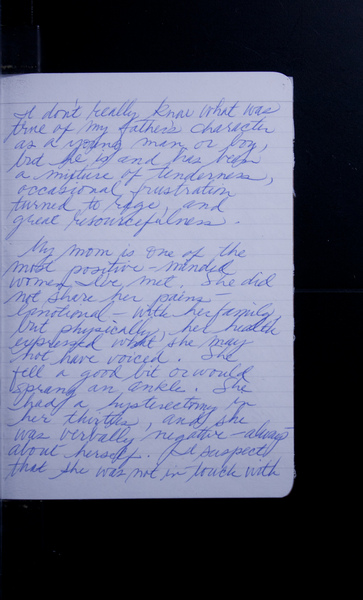 I don't really know what was
true of my fathers character
as a young man or boy,
but he is and has been
a mixture of tenderness,
occasional frustration
turned to rage, and
great resourcefulness.
My mom is one of the
most positive-minded
women I've met. She did
not share her pains -
emotional - with her family,
but physically, her health
expressed what she may
not have voiced. She
fell a good bit or would
sprang an ankle. She
had a hysterectomy in
her thirties, and she
was verbally negative - always
about herself. I suspect
that she was not in touch with